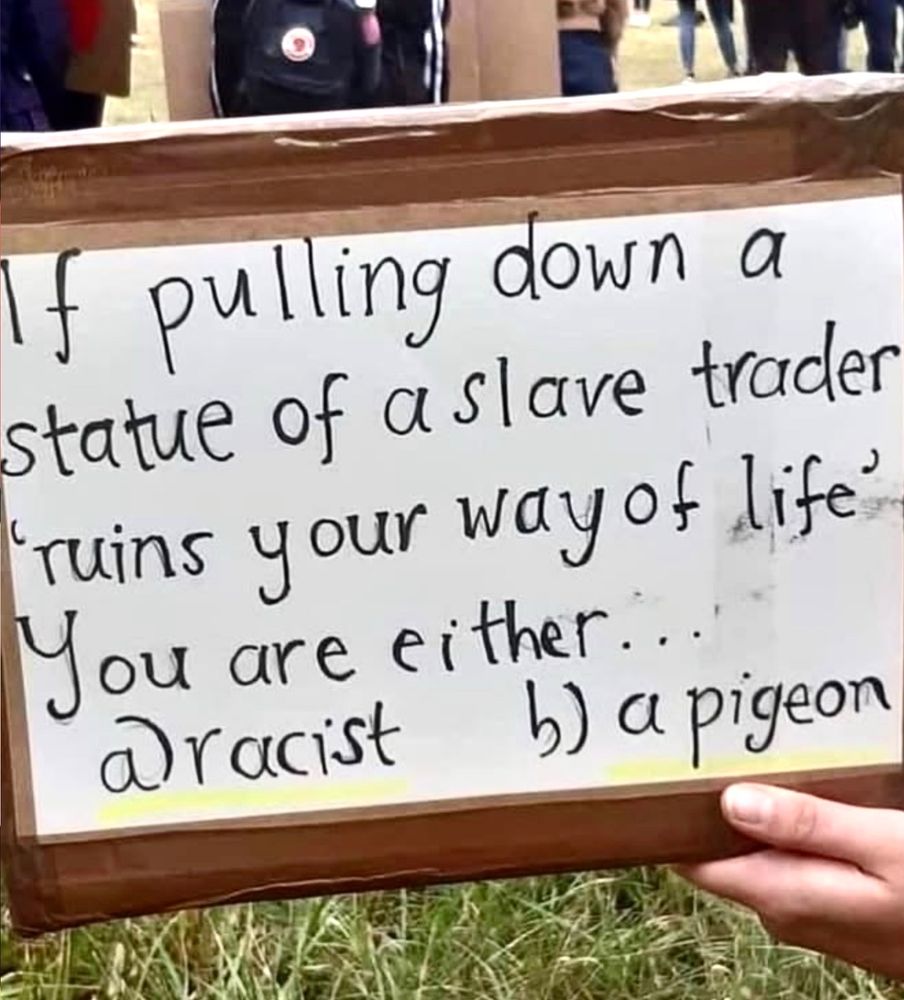 If pulling down a
statue of a slave trader
'ruins your way of life'
You are either...
a) racist b) a pigeon